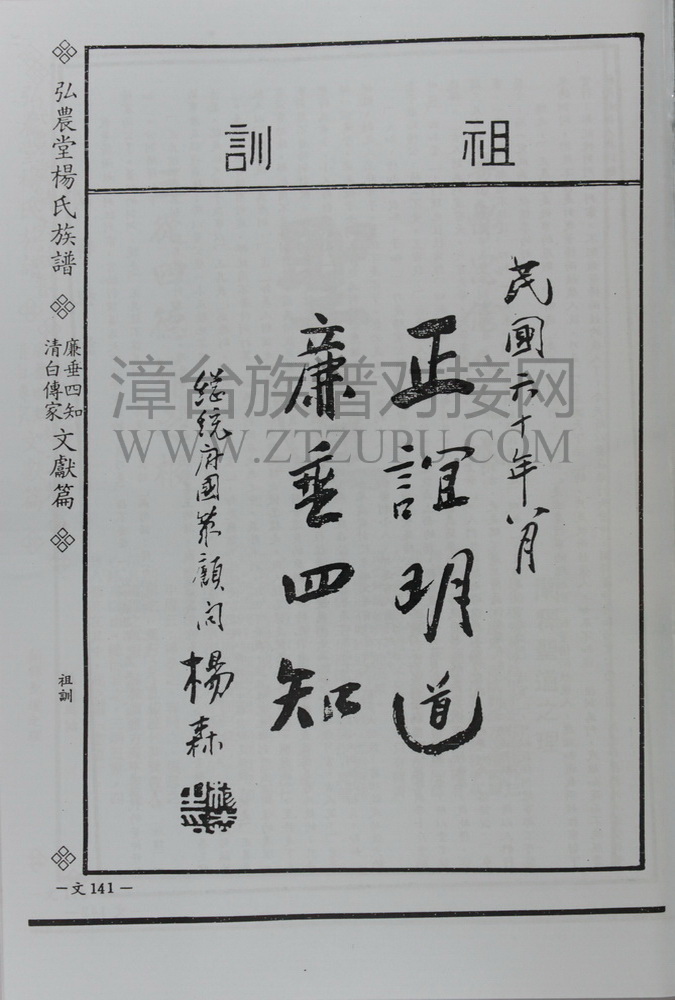 祖訓
民國六十年八月
正誼明道
廉垂四知
總統府國策顧問 楊森
弘農堂楊氏族譜
廉垂四知
清白傳家
文獻篇
祖訓
—文 141—
漳台族谱对接网
WWW.ZTZUPU.COM